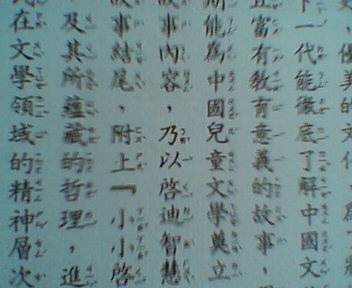 優美的文
下一代能徹底了解中國文
且富有教育意義的故事，
期能為中國兒童文學奠立
故事內容，乃以啓迪智慧
故事結尾，附上『小小啓
及其所蘊藏的哲理，進
在文學領域的精神層次